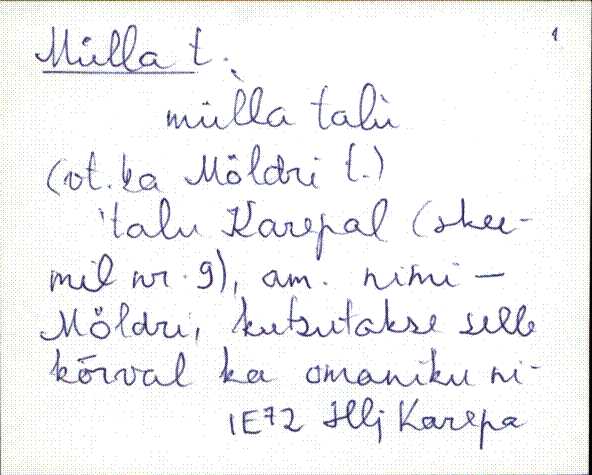 1
Mülla t.
mùlla talù
(vt. ka Möldri t.)
'talu Karepal (skee-
mil nr. 9), am. nimi –
Möldri, kutsutakse selle
kõrval ka omaniku ni-
IE72 Hlj Karepa